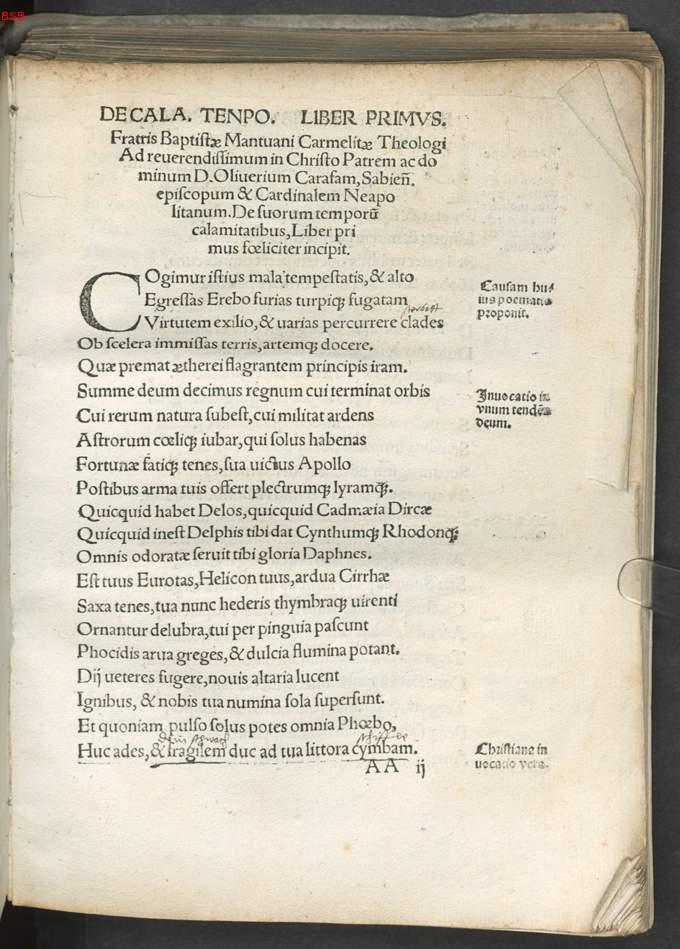 BSB
DE CALA. TENPO. LIBER PRIMVS.
Fratris Baptistæ Mantuani Carmelitæ Theologi
Ad reuerendiſſimum in Chriſto Patrem ac do
minum D. Oliuerium Carafam, Sabien̄.
epiſcopum & Cardinalem Neapo
litanum. De ſuorum temporū
calamitatibus, Liber pri
mus fœliciter incipit.
COgimur iſtius mala tempeſtatis, & alto
Egreſſas Erebo furias turpiq; fugatam
Virtutem exilio, & uarias percurrere clades
Ob ſcelera immiſſas terris, artemq; docere.
Quæ premat ætherei flagrantem principis iram.
Summe deum decimus regnum cui terminat orbis
Cui rerum natura ſubeſt, cui militat ardens
Aſtrorum cœliq; iubar, qui ſolus habenas
Fortunæ fatiq; tenes, ſua uictus Apollo
Poſtibus arma tuis offert plectrumq; lyramq;.
Quicquid habet Delos, quicquid Cadmæia Dircæ
Quicquid ineſt Delphis tibi dat Cynthumq; Rhodonq;
Omnis odoratæ ſeruit tibi gloria Daphnes.
Eſt tuus Eurotas, Helicon tuus, ardua Cirrhæ
Saxa tenes, tua nunc hederis thymbraq; uirenti
Ornantur delubra, tui per pinguia paſcunt
Phocidis arua greges, & dulcia flumina potant.
Dij ueteres fugere, nouis altaria lucent
Ignibus, & nobis tua numina ſola ſuperſunt.
Et quoniam pulſo ſolus potes omnia Phœbo,
Huc ades, & fragilem duc ad tua littora cymbam.
AA ij
Cauſam hu⸗
ius poematis
proponit.
Inuocatio ī
vnum tendēs
deum.
Chriſtiana in
uocatio vera.